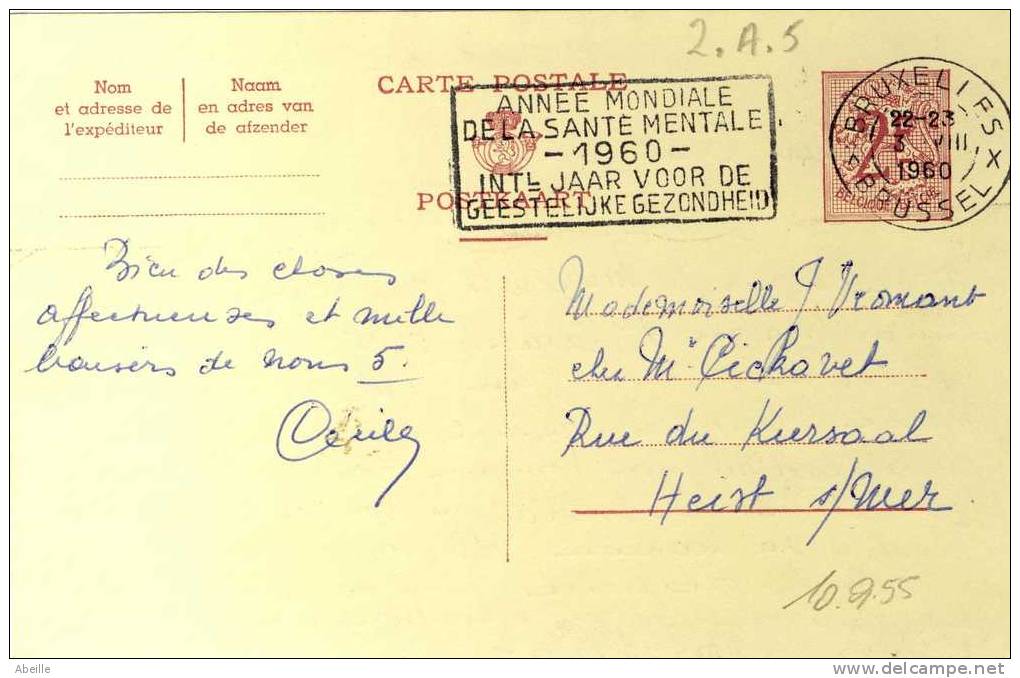 2.A.5
Nom
et adresse de
l'expéditeur
Naam
en adres van
de afzender
CARTE POSTALE
POSTKAART
ANNÉE MONDIALE
DE LA SANTÉ MENTALE
-1960-
INTL JAAR VOOR DE
GEESTELIJKE GEZONDHEID
BRUXELLES X
22-23
3 VIII
1960
BRUSSEL
2F
BELGIQUE-BELGIE
Bien des choses
affectueuses et mille
baisers de nous 5.
Mademoiselle J. Vromant
chez Mr Pickavet
Rue du Kursaal
Heist s/mer
10.9.55
Abeille
www.delcampe.net